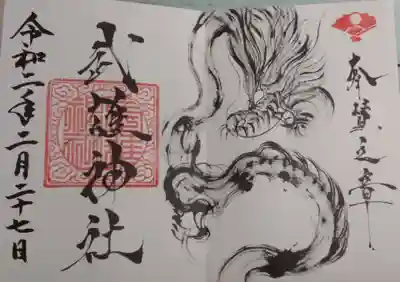 奉賛之章
武護神社
令和二年二月二十七日